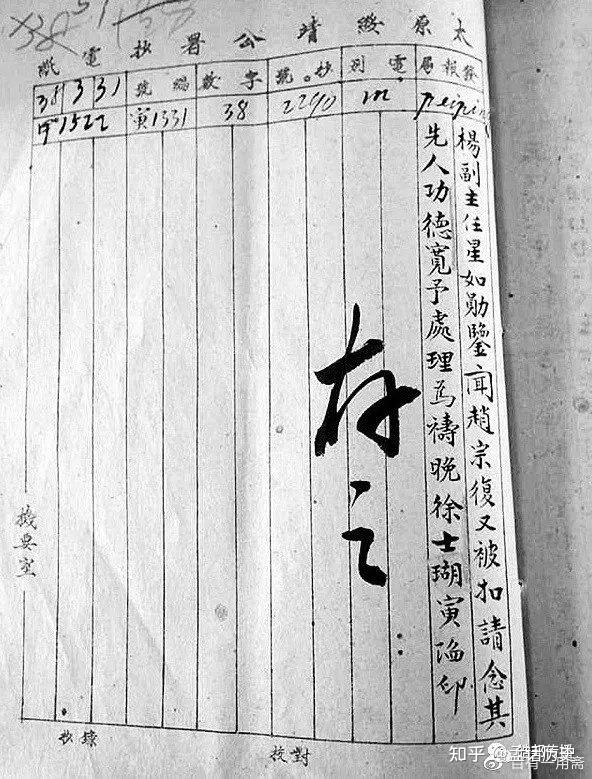 太原綏靖公署抄電紙
發報局
電別
抄號
字數
編號
38 3 31
Peiping
m
2290
38
寅1331
1522
楊副主任星如勛鑒聞趙宗復又被扣請念其
先人功德寬予處理為禱晚徐士瑚寅陷印
存之
機要室
校對
抄錄
知乎